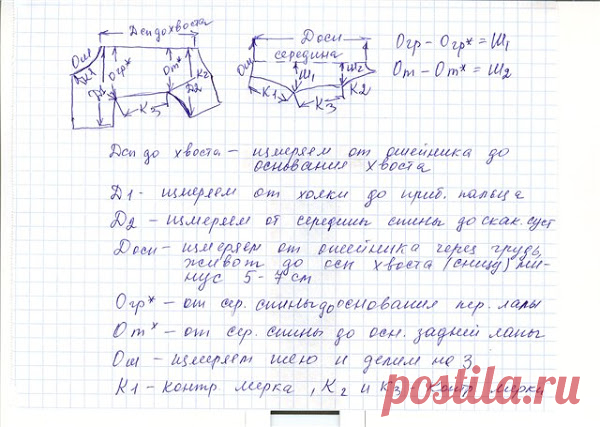 Дсп до хвоста
Доси
середина
Ош
Д1
Д1
Огр*
От*
К2
Д2
К3
Ош
К1
Ш1
Ш2
К3
К2
Огр – Огр* = Ш1
От – От* = Ш2
Дсп до хвоста – измеряем от ошейника до
основания хвоста
Д1 – измеряем от холки до приб. пальца
Д2 – измеряем от середины спины до скак. суст
Доси – измеряем от ошейника через грудь,
живот до осн хвоста (снизу) ми-
нус 5-7 см
Огр* – от сер. спины до основания пер. лапы
От* – от сер. спины до осн. задней лапы
Ош – измеряем шею и делим на 3
К1 – контр. мерка, К2 и К3 – контр. мерки
postila.ru